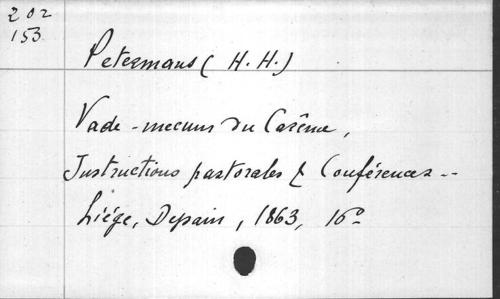 202
153
Petermans (H. H.)
Vade-mecum du Carême,
Instructions pastorales & Conférences --
Liége, Depain, 1863, 16º